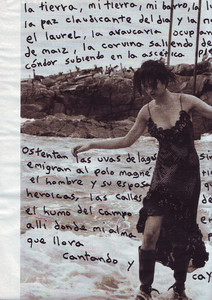 la tierra, mi tierra, mi barro, la lu
la paz claudicante del día y la n
el laurel, la avaucaria ocup
de maíz, la coruina saliendo de
cóndor subiendo en la ascética
Ostentan las uvas de lagos
emigran al polo magne
el hombre y su esposa
heroicas, las calles
el humo del campo
allí donde mi alma
que llora
cantando y
cay